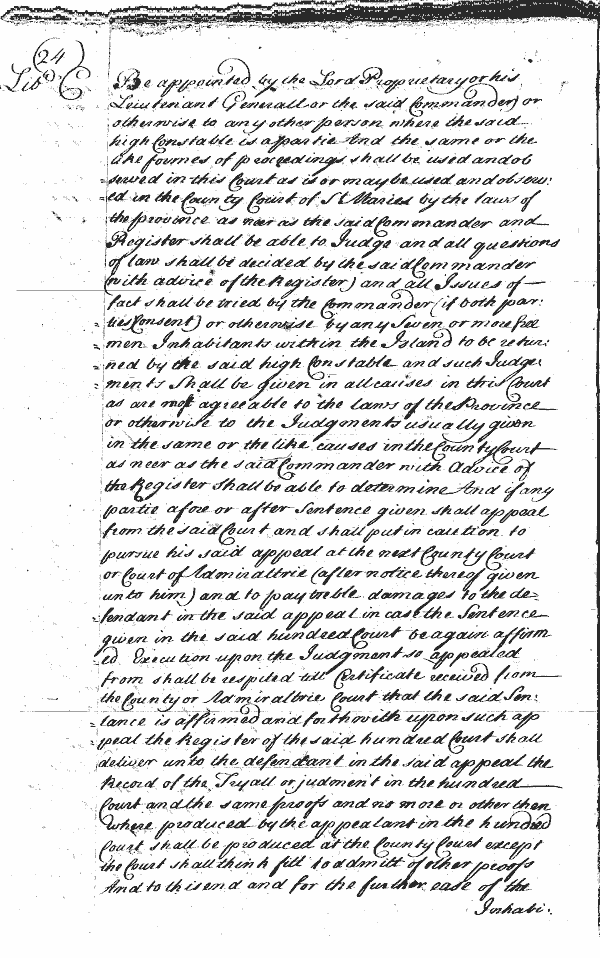 24
Lib: C
Be appointed by the Lord Proprietary or his
Lieutenant Generall or the said Commander) or
otherwise to any other person where the said
high Constable is a partie And the same or the
like formes of proceedings shall be used and ob
served in this Court as is or may be used and observ:
ed in the County Court of St Maries by the laws of
the province as neer as the said Commander and
Register shall be able to Judge and all questions
of law shall be decided by the said Commander
(with advice of the Register) and all Issues of
fact shall be tried by the Commander (if both par:
ties Consent) or otherwise by any Seven or more free
men Inhabitants within the Island to be retur:
ned by the said high Constable and such Judge
ments Shall be given in all causes in this Court
as are most agreeable to the laws of the Province
or otherwise to the Judgments usually given
in the same or the like causes in the County Court
as neer as the said Commander with Advice of
the Register shall be able to determine And if any
partie afore or after Sentence given shall appeal
from the said Court and shall put in caution to
pursue his said appeal at the next County Court
or Court of Admiraltrie (after notice thereof given
unto him) and to pay treble damages to the de=
fendant in the said appeal in case the Sentence
given in the said hundred Court be again affirm
ed Execution upon the Judgment so appealed
from shall be respited till Certificate received from
the County or Admiraltrie Court that the said Sen:
tance is affirmed and forthwith upon such ap
peal the Register of the said hundred Court shall
deliver unto the defendant in the said appeal the
Record of the Tryall or judment in the hundred
Court and the same proofs and no more or other then
where produced by the appealant in the hundred
Court shall be produced at the County Court except
the Court shall think fitt to admitt of other proofs
And to this end and for the further ease of the
Inhabi: